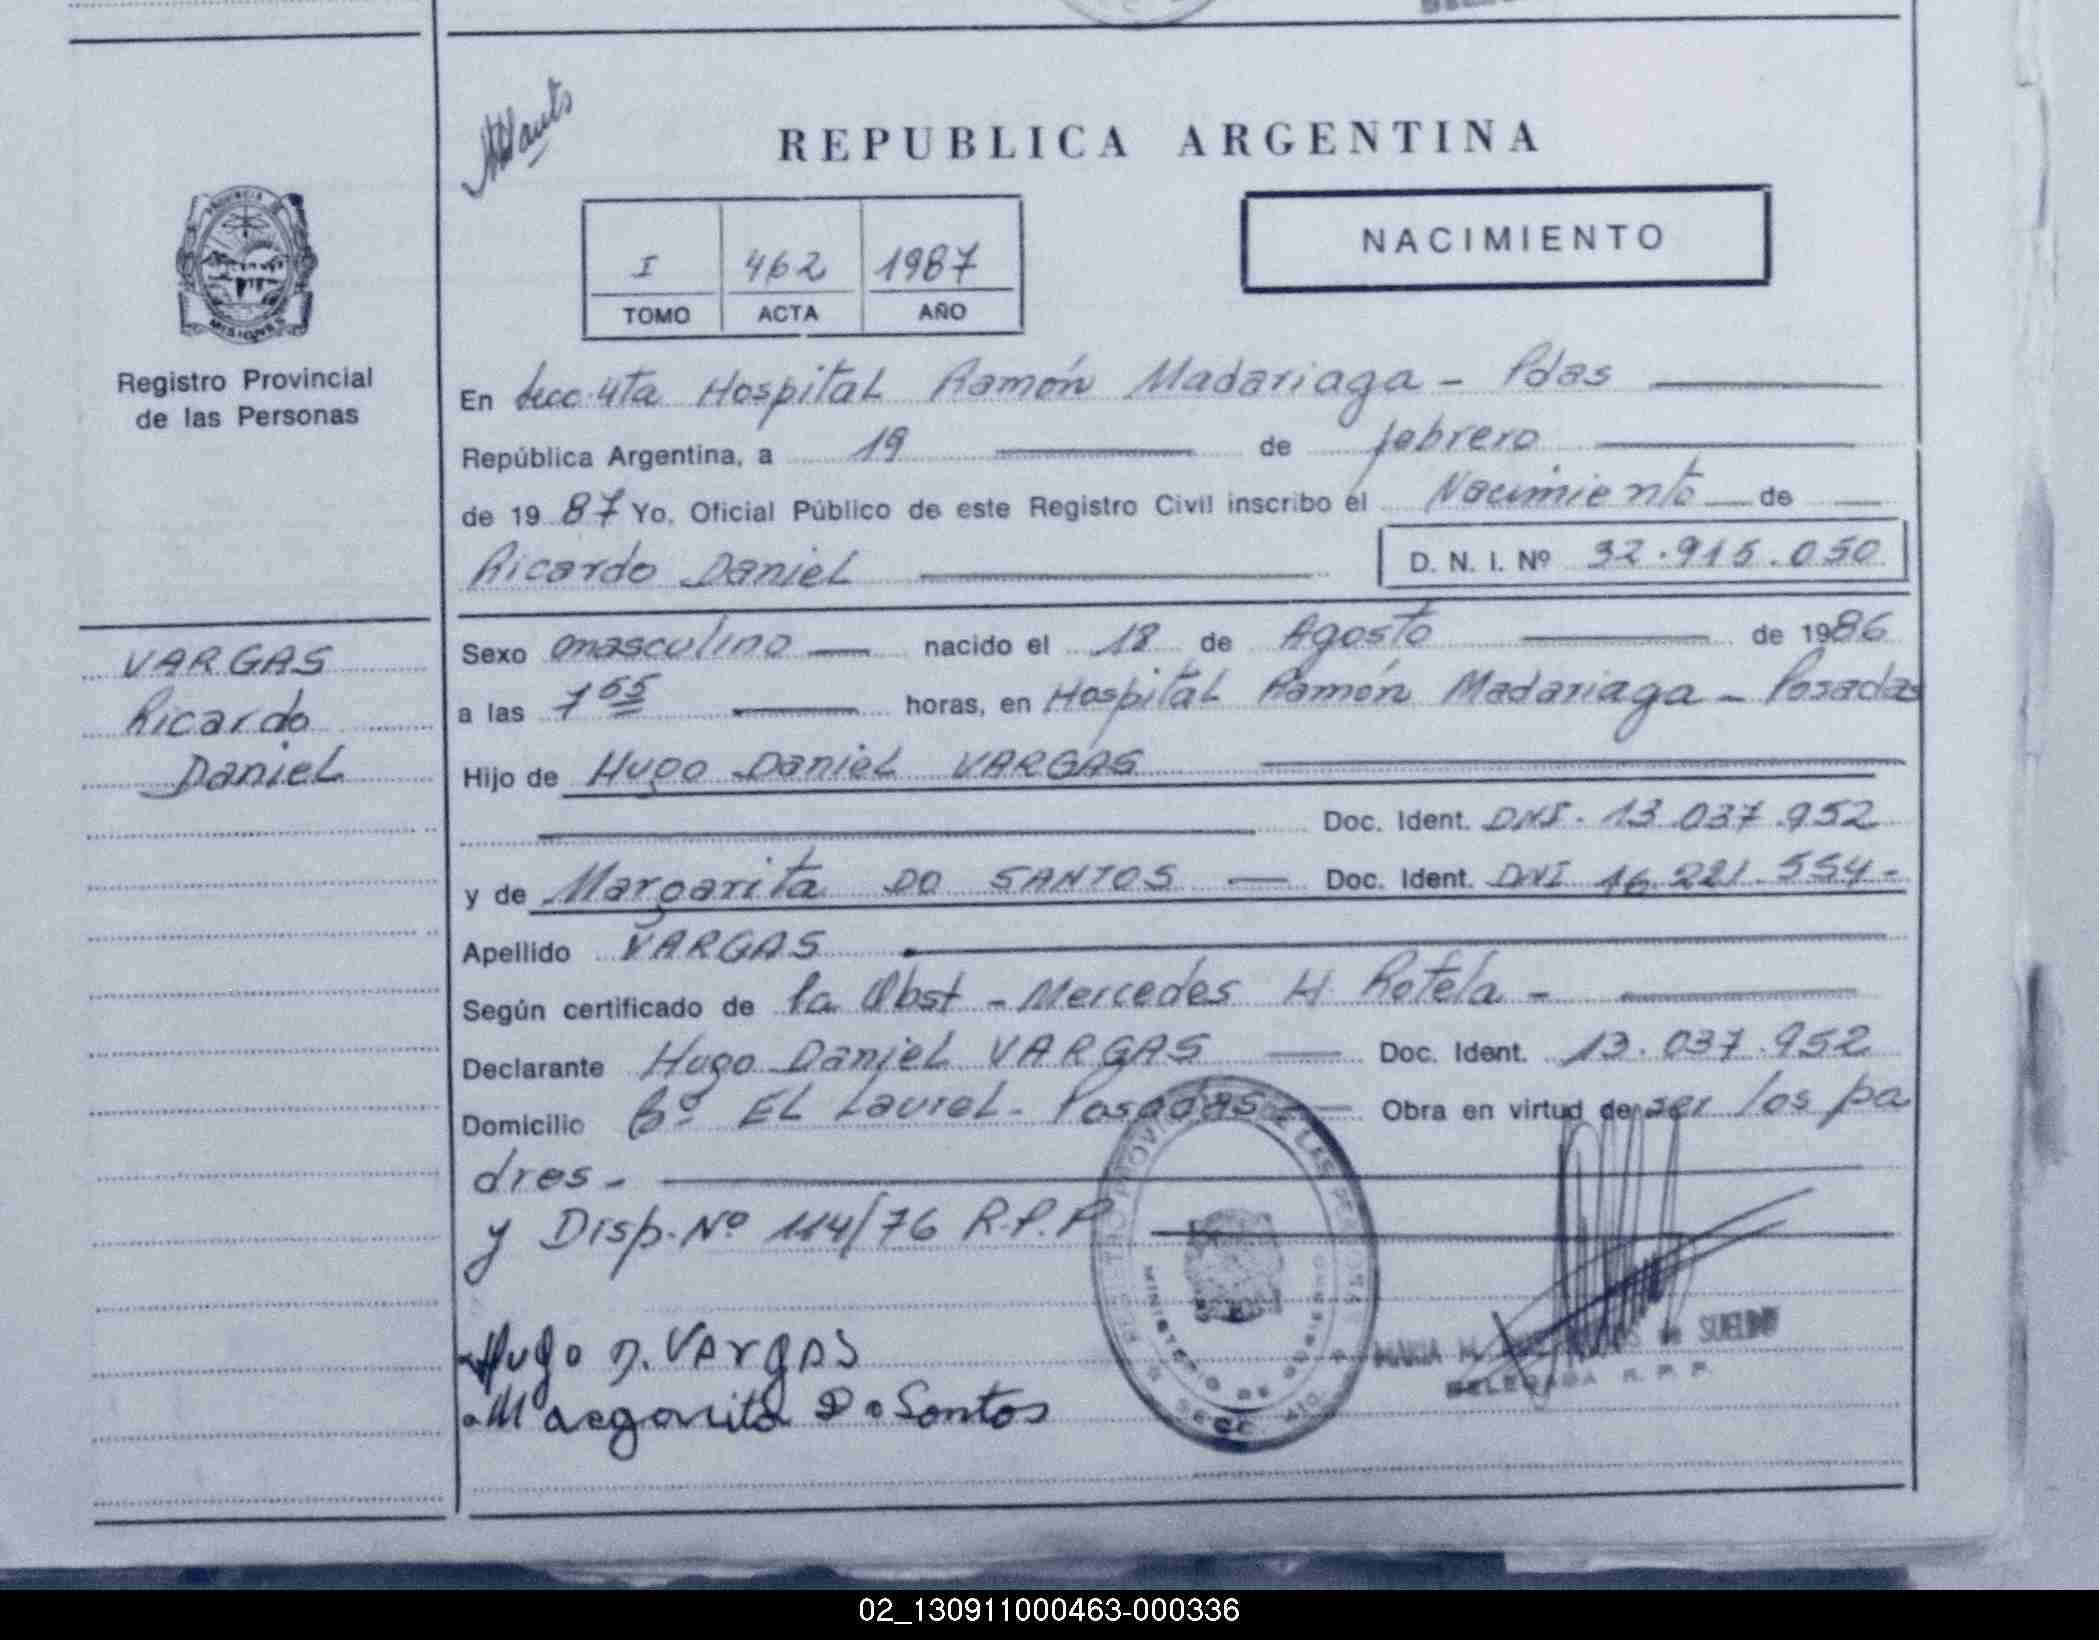 REPUBLICA ARGENTINA
I 462 1987
TOMO ACTA AÑO
NACIMIENTO
PROVINCIA DE
MISIONES
Registro Provincial
de las Personas
VARGAS
Ricardo
Daniel
En Secc 4ta Hospital Ramón Madariaga - Pdas
República Argentina, a 19 de febrero
de 1987 Yo, Oficial Público de este Registro Civil inscribo el Nacimiento de
Ricardo Daniel D. N. I. Nº 32.915.050
Sexo masculino nacido el 18 de Agosto de 1986
a las 7 55 horas, en Hospital Ramón Madariaga - Posadas
Hijo de Hugo Daniel VARGAS
Doc. Ident. DNI. 13.037.952
y de Margarita DO SANTOS Doc. Ident. DNI 16.221.554-
Apellido VARGAS
Según certificado de la Obst - Mercedes H Rotela -
Declarante Hugo Daniel VARGAS Doc. Ident. 13.037.952
Domicilio Bº EL Laurel - Posadas Obra en virtud de ser los pa
dres -
y Disp. Nº 114/76 R.P.P
Hugo D. VArgAS
Margarita Do Santos
MINISTERIO DE GOBIERNO
MARIA M. de SUELDO
DELEGADA R. P. P.
02_130911000463-000336